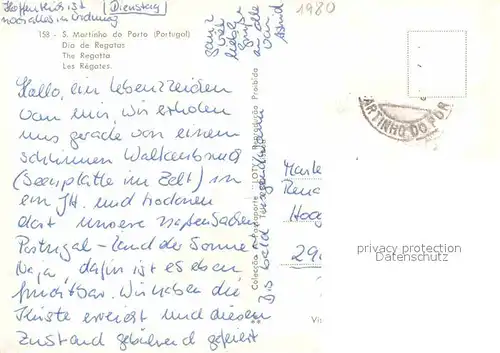 Hoffentlich ist
noch alles in Ordnung
Dienstag
1980
158 - S. Martinho do Porto (Portugal)
Dia de Regatas
The Regatta
Les Régates.
Hallo, ein Lebenszeichen
von mir, wir erholen
uns gerade von einem
schlimmen Wolkenbruch
(Seenplatte im Zelt) in
ein JH. und trocknen
dort unsere nassen Sachen
Portugal - Land der Sonne
Naja, dafür ist es eben
fruchtbar. Wir haben die
Küste erreicht und diesen
Zustand gebührend gefeiert
Bis bald
ganz
viele
liebe
Grüße
an alle
von
Colecção Passaporte "LOTY" Reprodução Proibida
MARTINHO DO POR
Rena
Hoog
privacy protection
Datenschutz